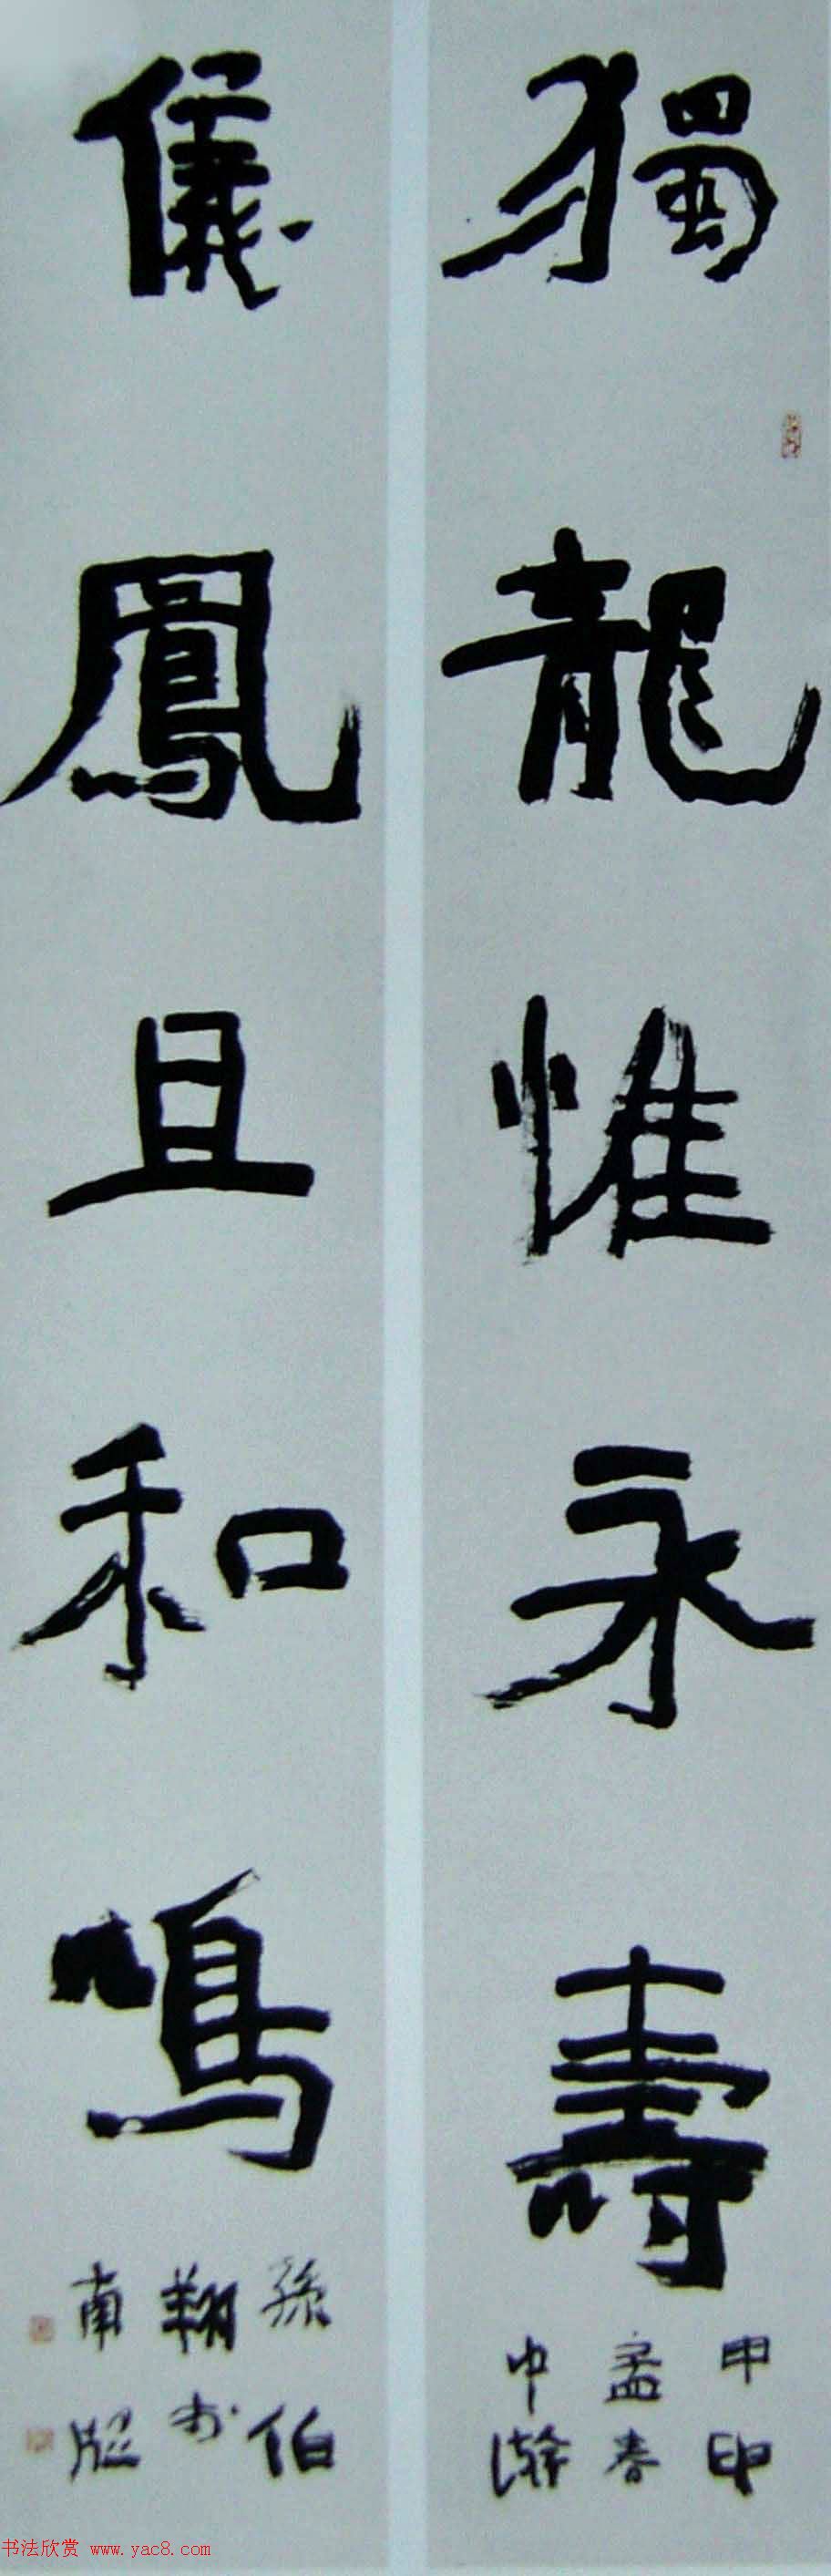 獨龍惟永壽
甲申
孟春
中澣
儀鳳且和鳴
孫伯
翔於
南
书法欣赏 www.yac8.com